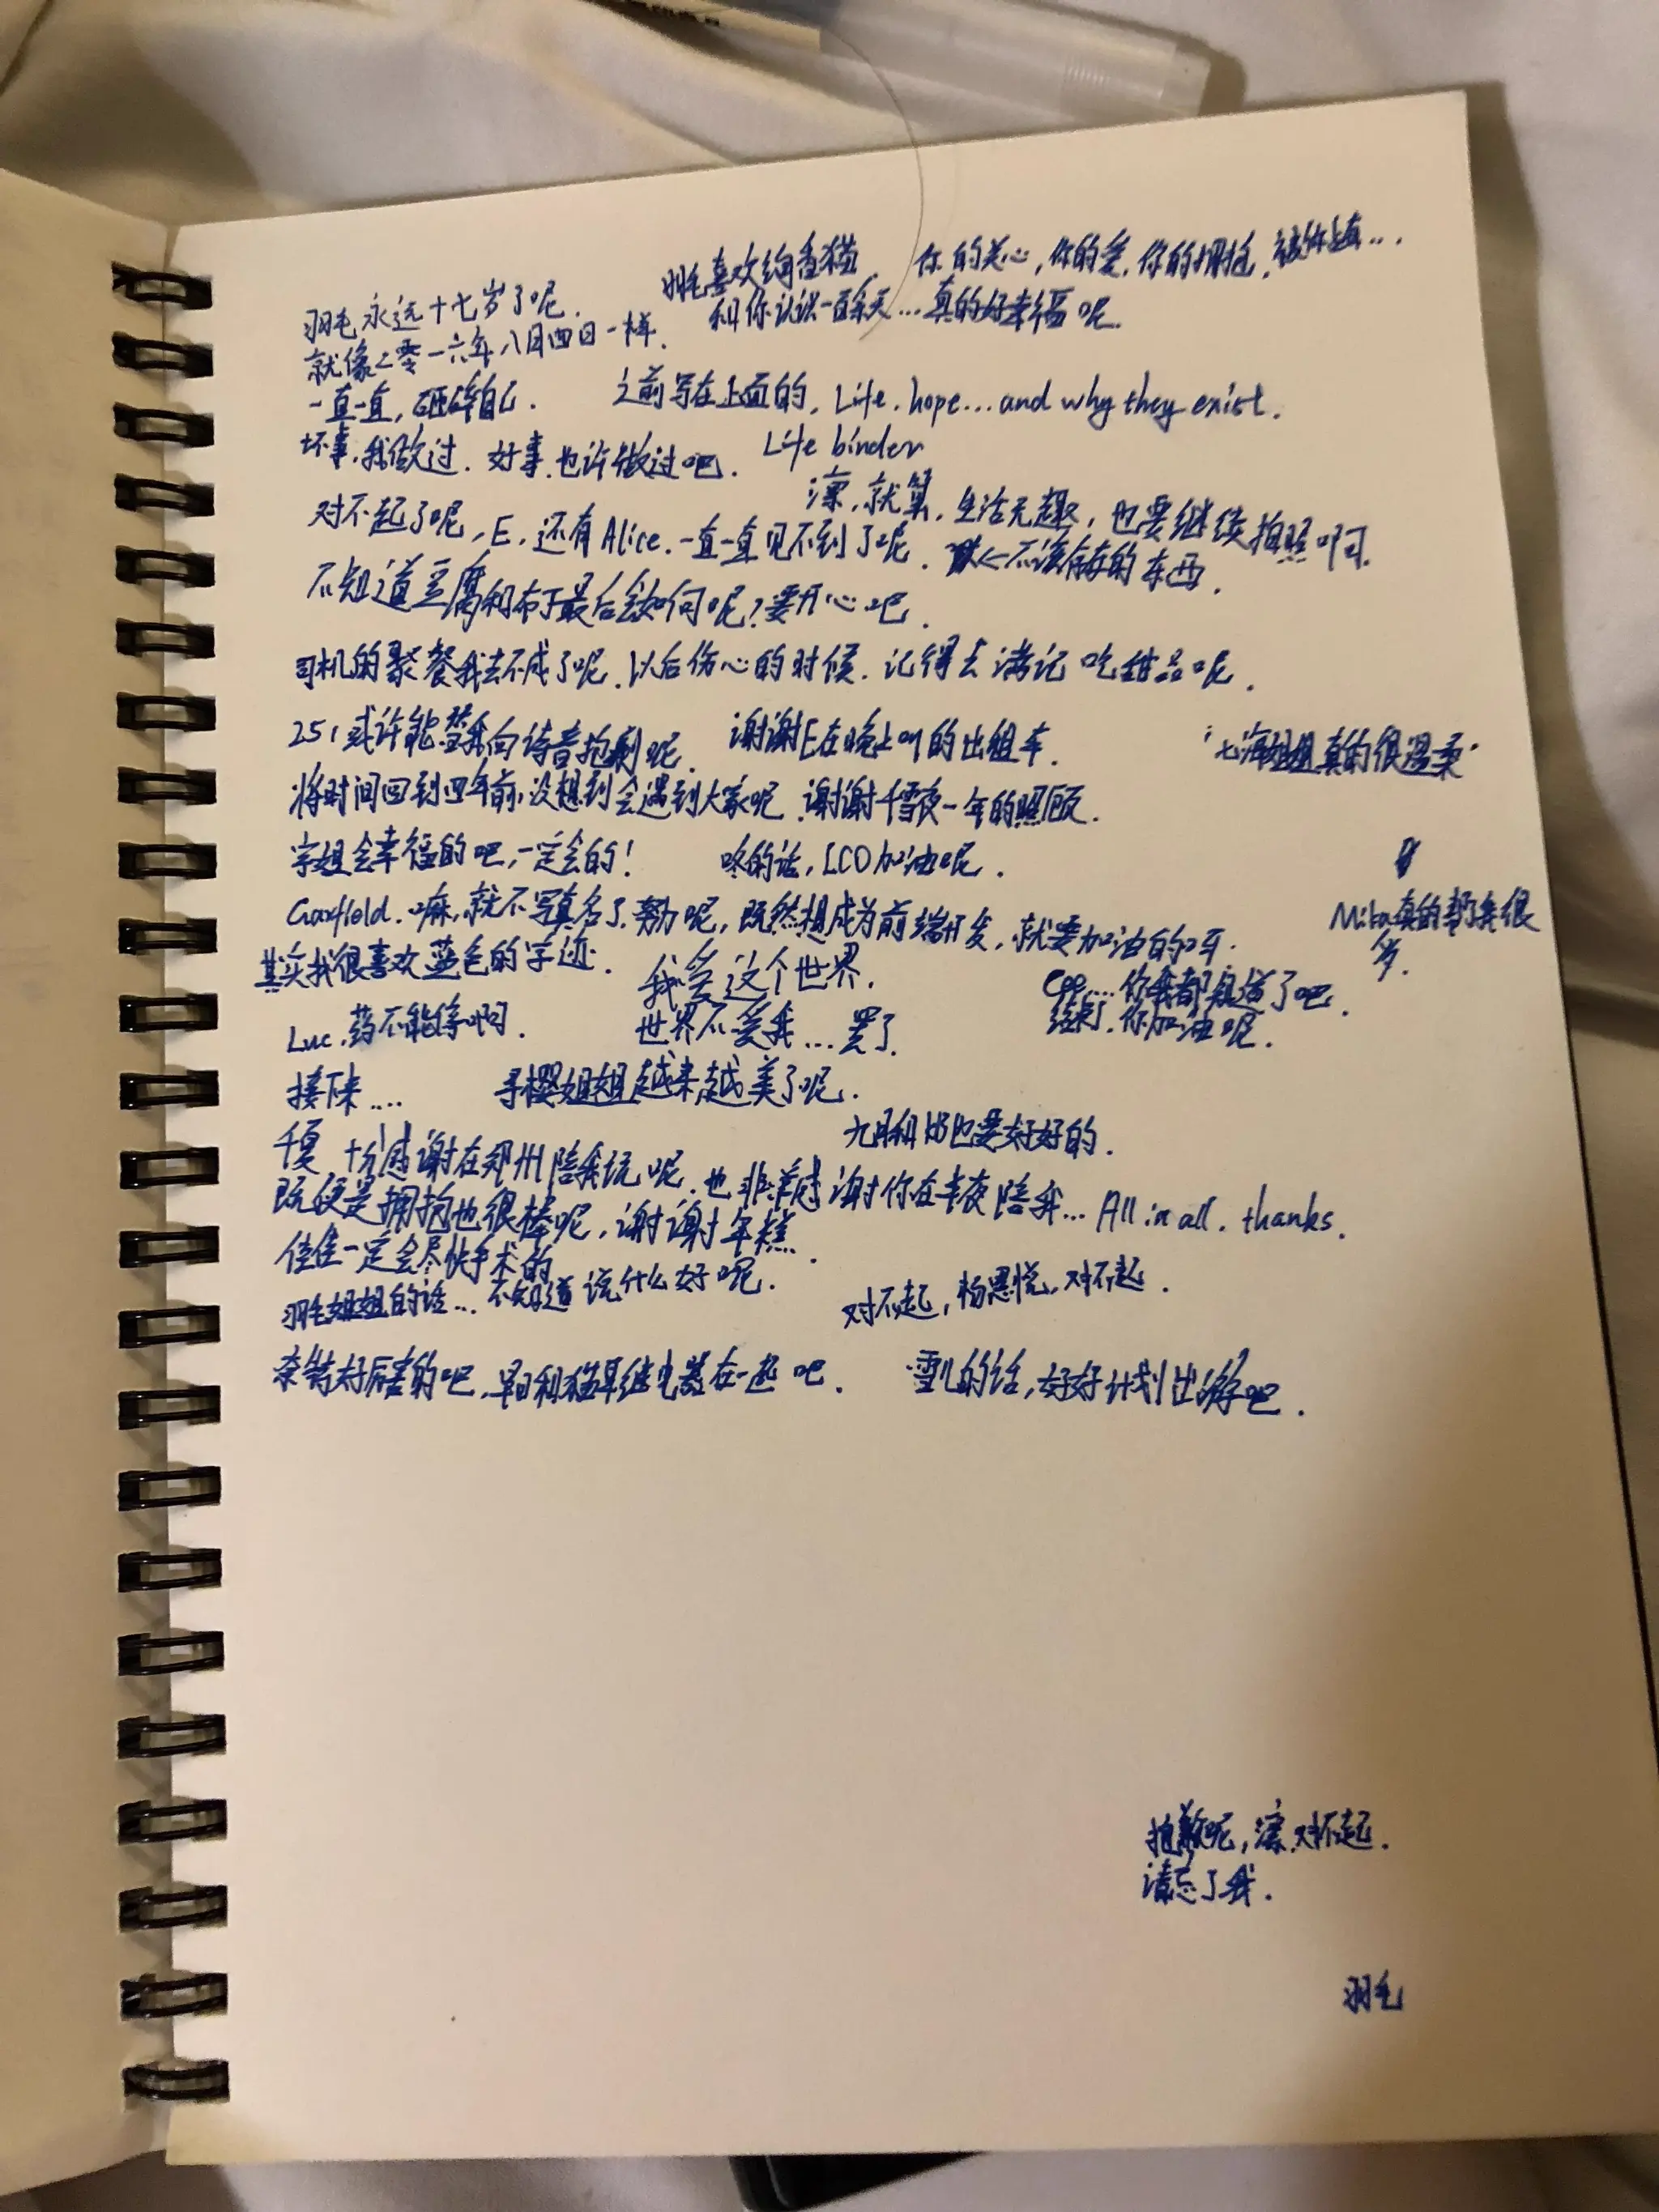 羽毛永远十七岁了呢.
就像二零一六年八月四日一样.
一直一直,砸碎自己.
坏事,我做过.好事,也许做过吧.
羽毛喜欢绚香猫.
你的关心,你的爱.你的拥抱,
和你认识一百余天...真的好幸福呢.
之前写在上面的, Life, hope... and why they exist.
Life binder
凛,就算,生活无趣,也要继续拍照啊.
对不起了呢, E, 还有Alice.一直一直见不到了呢.
不该存在的东西.
不知道豆腐和布丁最后会如何呢?要开心吧.
司机的聚餐我去不成了呢.以后伤心的时候.记得去满记吃甜品呢.
251或许能替我向诗音抱歉呢.
谢谢E在晚上叫的出租车.
七海姐姐真的很温柔
将时间回到四年前,没想到会遇到大家呢.谢谢千雪夜一年的照顾.
字姐会幸福的吧,一定会的!
咚的话, LCO加油呢.
嘛,就不写真名了.努力呢,既然想成为前端开发,就要加油的呀.
Mika真的帮我很多.
其实我很喜欢蓝色的字迹.
我爱这个世界.
世界不爱我...罢了
你我都知道了吧.
结束了.你加油呢.
Luc.药不能停啊.
接下来....
寻樱姐姐越来越美了呢.
也要好好的.
千夏,十分感谢在郑州陪我玩呢.也非常感谢你在半夜陪我... All in all. thanks.
既便是拥抱也很棒呢,谢谢年糕.
佳佳一定会尽快手术的
羽毛姐姐的话...不知道说什么好呢.
对不起,杨恩悦,对不起.
奈特好厉害的吧,早日和猫耳继电器在一起吧.
雪儿的话,好好计划出游吧.
抱歉呢,凛.对不起.
请忘了我.
羽毛